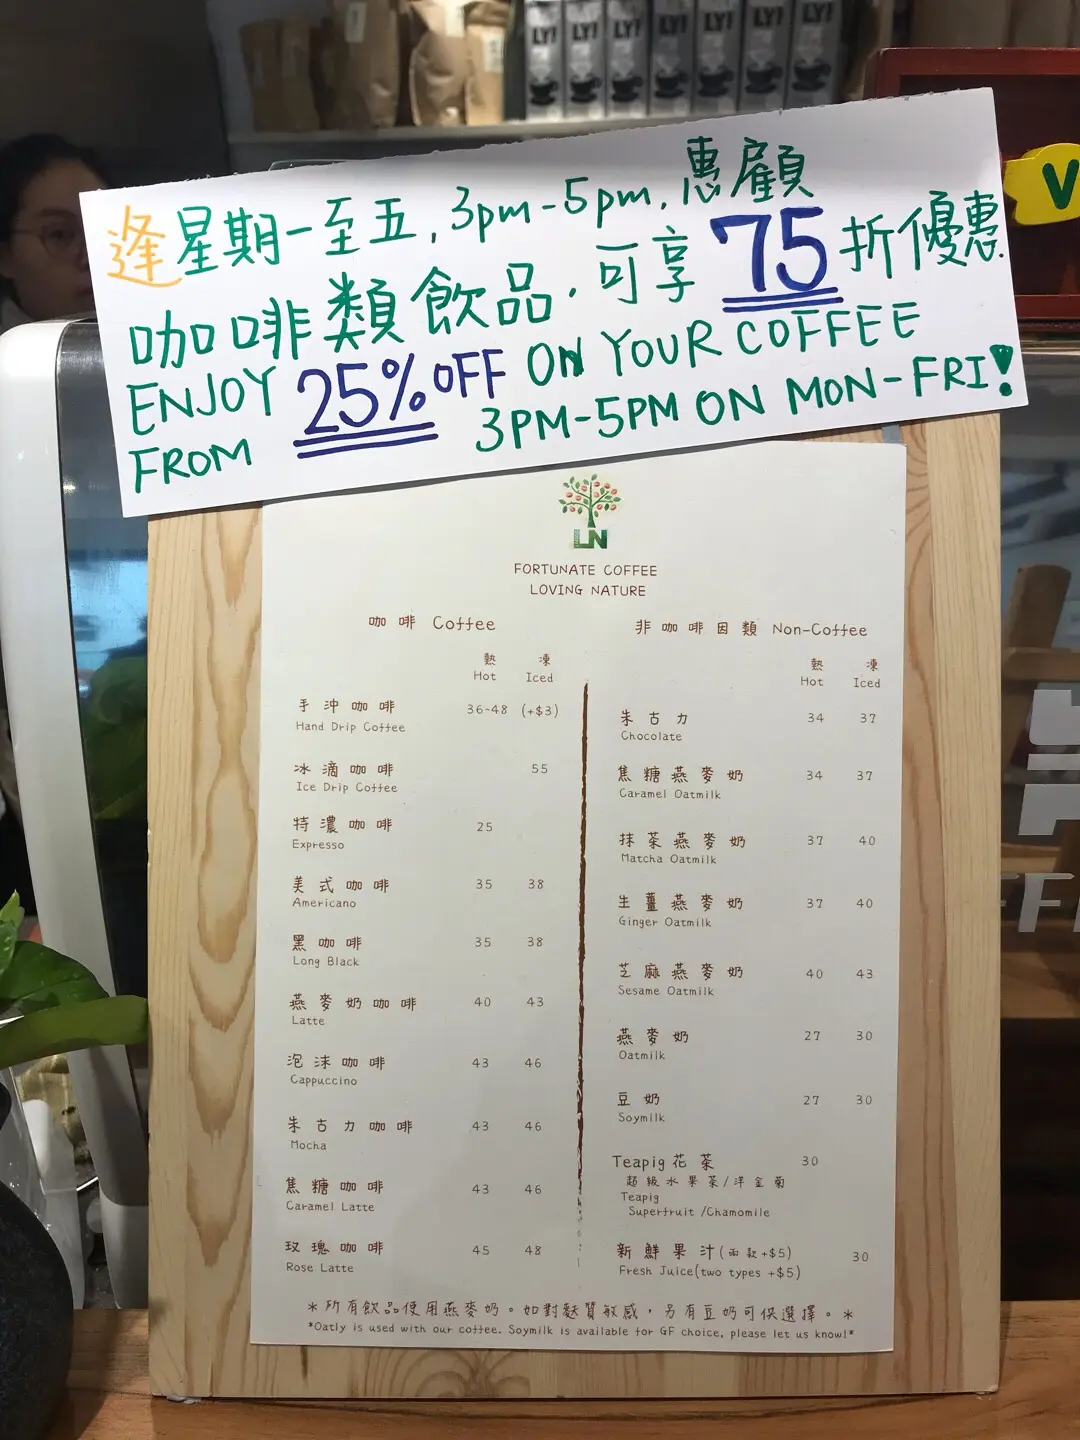 LY! LY! LY! LY! LY! LY! LY!
V
逢星期一至五, 3pm-5pm, 惠顧
咖啡類飲品, 可享75折優惠.
ENJOY 25% OFF ON YOUR COFFEE
FROM 3PM-5PM ON MON-FRI!
LN
FORTUNATE COFFEE
LOVING NATURE
咖啡 Coffee
熱 凍
Hot Iced
手沖咖啡 36-48 (+$3)
Hand Drip Coffee
冰滴咖啡 55
Ice Drip Coffee
特濃咖啡 25
Expresso
美式咖啡 35 38
Americano
黑咖啡 35 38
Long Black
燕麥奶咖啡 40 43
Latte
泡沫咖啡 43 46
Cappuccino
朱古力咖啡 43 46
Mocha
焦糖咖啡 43 46
Caramel Latte
玫瑰咖啡 45 48
Rose Latte
非咖啡因類 Non-Coffee
熱 凍
Hot Iced
朱古力 34 37
Chocolate
焦糖燕麥奶 34 37
Caramel Oatmilk
抹茶燕麥奶 37 40
Matcha Oatmilk
生薑燕麥奶 37 40
Ginger Oatmilk
芝麻燕麥奶 40 43
Sesame Oatmilk
燕麥奶 27 30
Oatmilk
豆奶 27 30
Soymilk
Teapig花茶 30
超級水果茶/洋金菊
Teapig
Superfruit /Chamomile
新鮮果汁(兩款+$5) 30
Fresh Juice(two types +$5)
*所有飲品使用燕麥奶。如對麩質敏感，另有豆奶可供選擇。*
*Oatly is used with our coffee. Soymilk is available for GF choice, please let us know!*